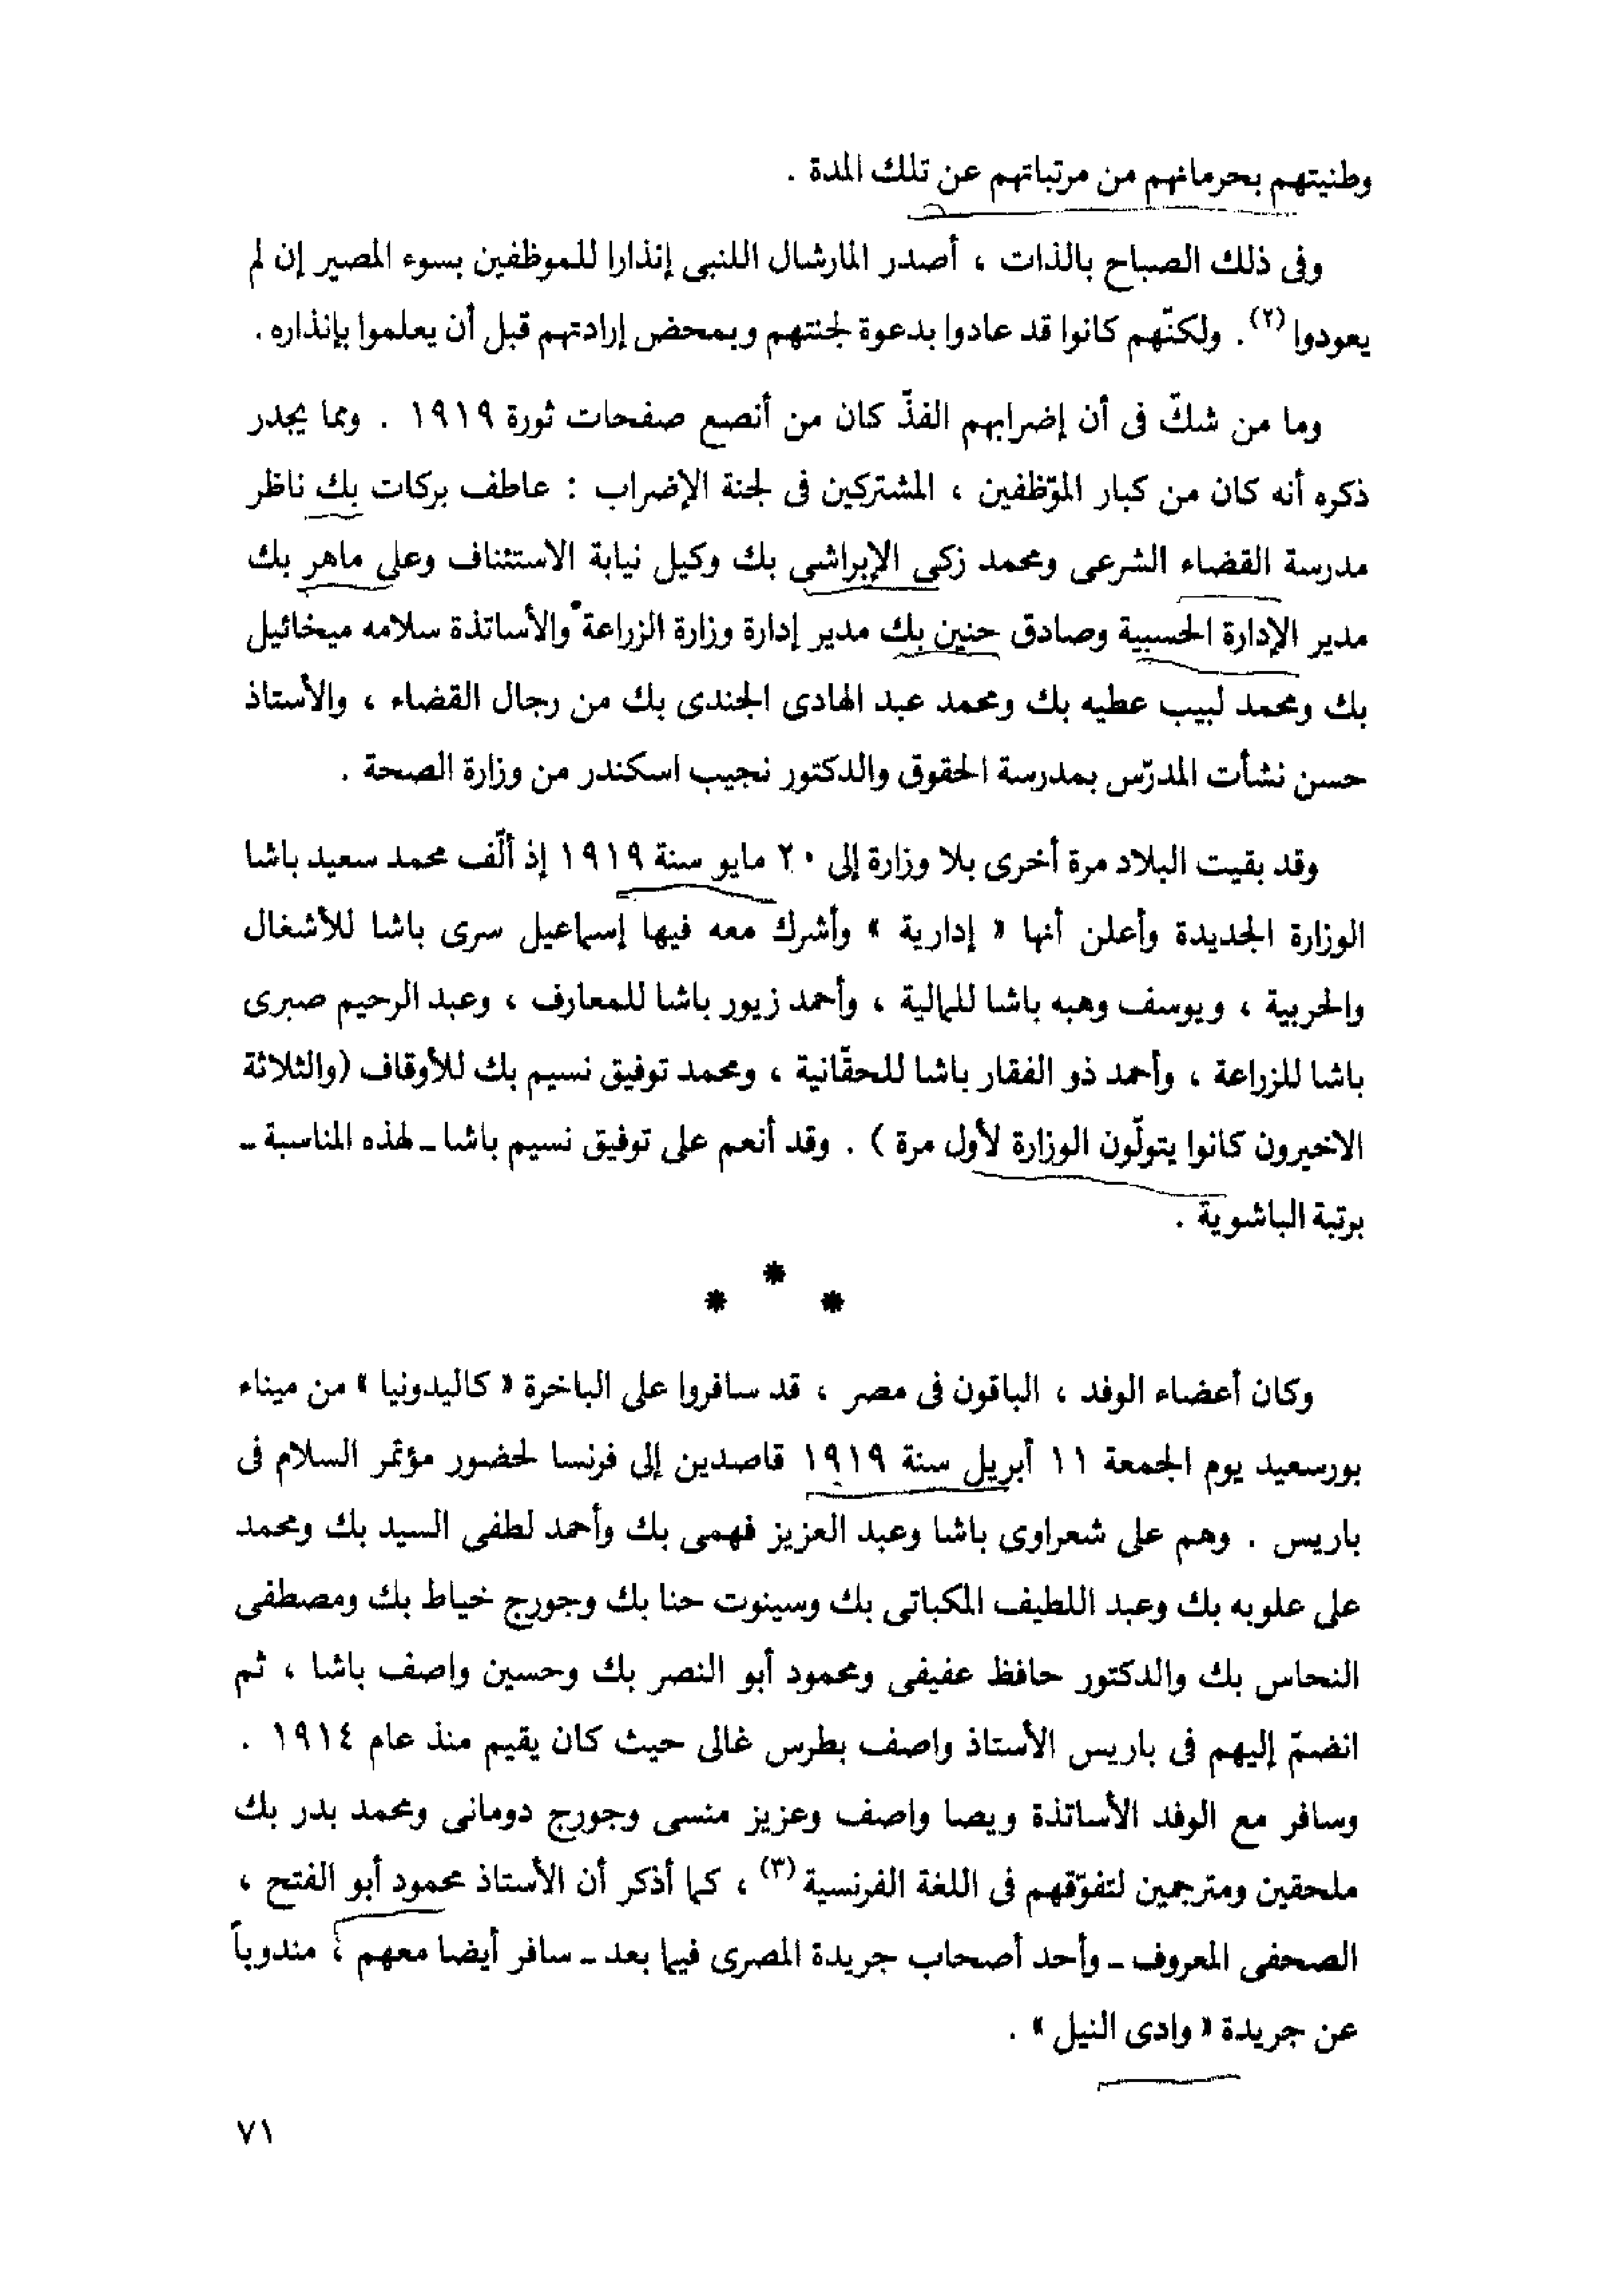 وطنيتهم بحرمانهم من مرتباتهم عن تلك المدة .
وفى ذلك الصباح بالذات ، أصدر المارشال اللنبى إنذارا للموظفين بسوء المصير إن لم
يعودوا (٢) . ولكنّهم كانوا قد عادوا بدعوة لجنتهم وبمحض إرادتهم قبل أن يعلموا بإنذاره .
وما من شكّ فى أن إضرابهم الفذّ كان من أنصع صفحات ثورة ١٩١٩ . ومما يجدر
ذكره أنه كان من كبار الموّظفين ، المشتركين فى لجنة الإضراب : عاطف بركات بك ناظر
مدرسة القضاء الشرعى ومحمد زكى الإبراشى بك وكيل نيابة الاستئناف وعلى ماهر بك
مدير الإدارة الحسبية وصادق حنين بك مدير إدارة وزارة الزراعة والأساتذة سلامه ميخائيل
بك ومحمد لبيب عطيه بك ومحمد عبد الهادى الجندى بك من رجال القضاء ، والأستاذ
حسن نشأت المدرّس بمدرسة الحقوق والدكتور نجيب اسكندر من وزارة الصحة .
وقد بقيت البلاد مرة أخرى بلا وزارة إلى ٢٠ مايو سنة ١٩١٩ إذ ألّف محمد سعيد باشا
الوزارة الجديدة وأعلن أنها « إدارية » وأشرك معه فيها إسماعيل سرى باشا للأشغال
والحربية ، ويوسف وهبه باشا للمالية ، وأحمد زيور باشا للمعارف ، وعبد الرحيم صبرى
باشا للزراعة ، وأحمد ذو الفقار باشا للحقّانية ، ومحمد توفيق نسيم بك للأوقاف (والثلاثة
الاخيرون كانوا يتولّون الوزارة لأول مرة ) . وقد أنعم على توفيق نسيم باشا ـ لهذه المناسبة ـ
برتبة الباشوية .
* * *
وكان أعضاء الوفد ، الباقون فى مصر ، قد سافروا على الباخرة « كاليدونيا » من ميناء
بورسعيد يوم الجمعة ١١ أبريل سنة ١٩١٩ قاصدين إلى فرنسا لحضور مؤتمر السلام فى
باريس . وهم على شعراوى باشا وعبد العزيز فهمى بك وأحمد لطفى السيد بك ومحمد
على علوبه بك وعبد اللطيف المكباتى بك وسينوت حنا بك وجورج خياط بك ومصطفى
النحاس بك والدكتور حافظ عفيفى ومحمود أبو النصر بك وحسين واصف باشا ، ثم
انضمّ إليهم فى باريس الأستاذ واصف بطرس غالى حيث كان يقيم منذ عام ١٩١٤ .
وسافر مع الوفد الأساتذة ويصا واصف وعزيز منسى وجورج دومانى ومحمد بدر بك
ملحقين ومترجمين لتفوّقهم فى اللغة الفرنسية (٣) ، كما أذكر أن الأستاذ محمود أبو الفتح ،
الصحفى المعروف ـ وأحد أصحاب جريدة المصرى فيما بعد ـ سافر أيضا معهم ، مندوباً
عن جريدة « وادى النيل » .
٧١